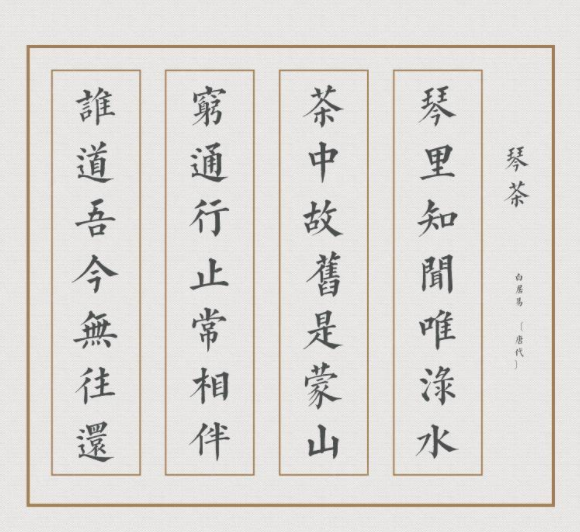 琴茶
白居易
〔唐代〕
琴里知聞唯渌水
茶中故舊是蒙山
窮通行止常相伴
誰道吾今無往還